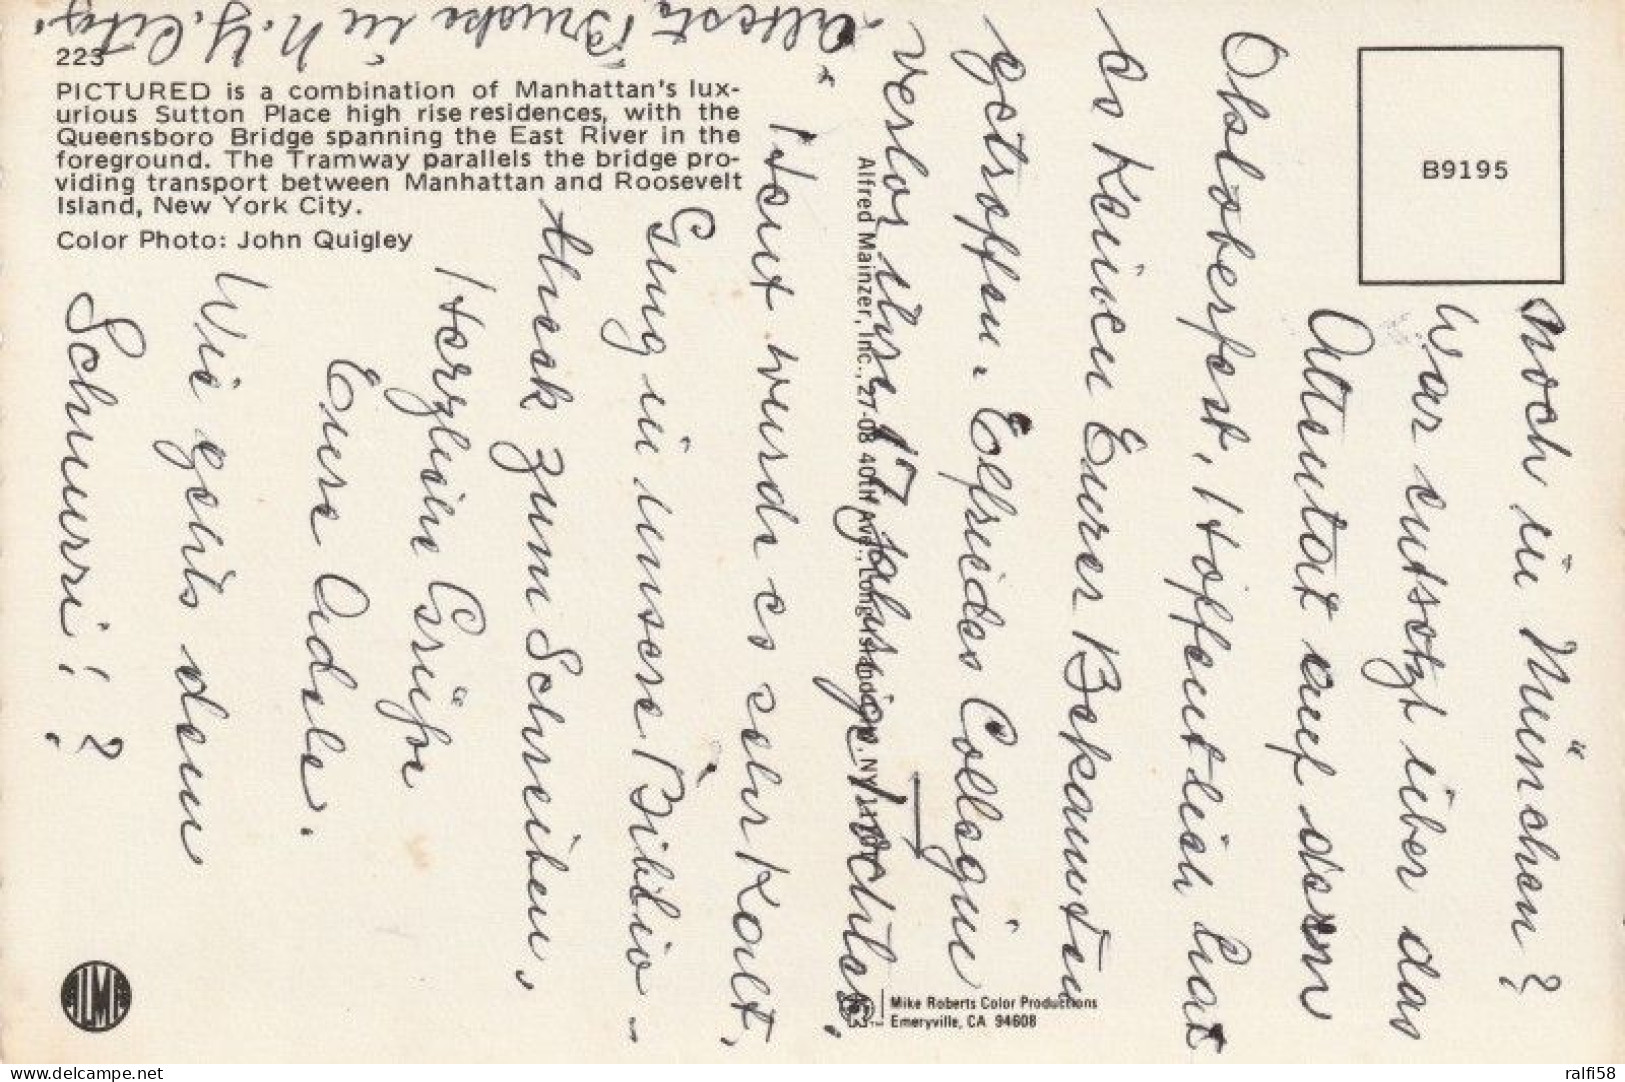 älteste Brücke in N.Y. City.
223
PICTURED is a combination of Manhattan's lux-
urious Sutton Place high rise residences, with the
Queensboro Bridge spanning the East River in the
foreground. The Tramway parallels the bridge pro-
viding transport between Manhattan and Roosevelt
Island, New York City.
Color Photo: John Quigley
B9195
Noch in München?
War entsetzt über das
Attentat auf dem
Oktoberfest. Hoffentlich hat
es keinen Eurer Bekannten
getroffen. Elfriedes Collegin
verlor ihre 17 jährige Tochter.
Heut wurde es sehr kalt,
Ging in unsere Biblio-
thek zum Schreiben,
Herzliche Grüße
Eure Adele.
Wie gehts dem
Schnurri!?
Alfred Mainzer, Inc., 27-08 40th Ave., Long Island City, NY
Mike Roberts Color Productions
Emeryville, CA 94608
ALMA
ralfi58